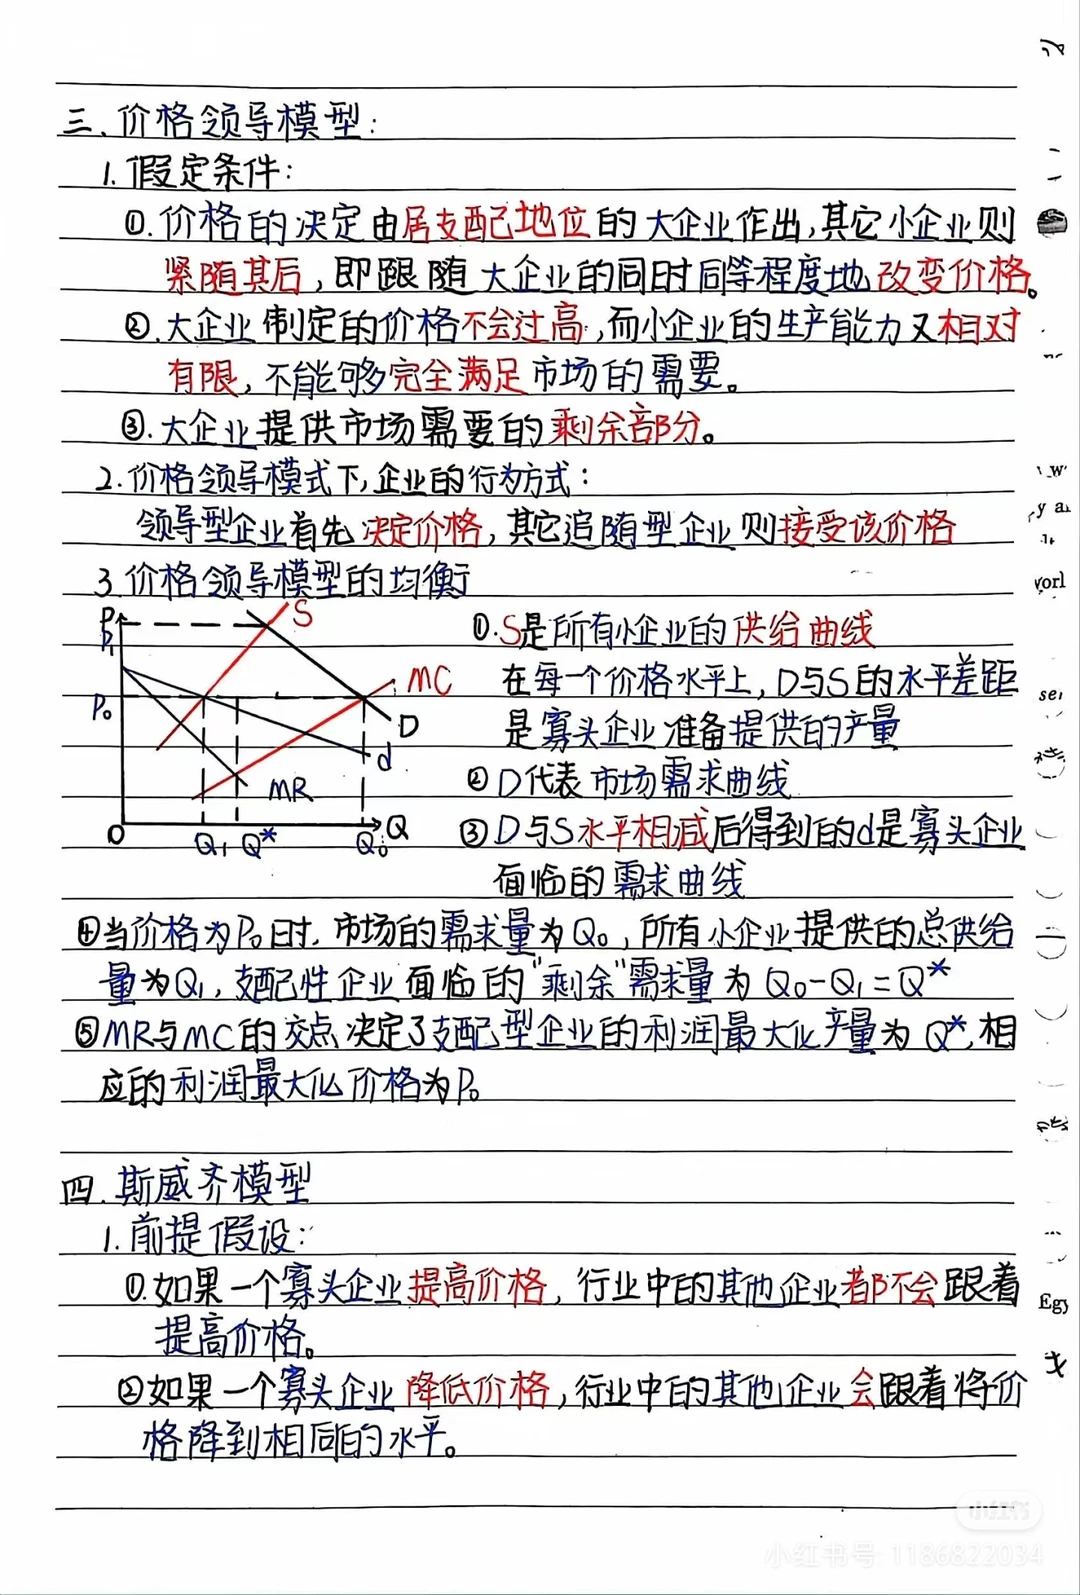 三、价格领导模型:
1. 假定条件:
①. 价格的决定由居支配地位的大企业作出,其它小企业则
紧随其后,即跟随大企业的同时同等程度地改变价格。
②. 大企业制定的价格不会过高,而小企业的生产能力又相对
有限,不能够完全满足市场的需要。
③. 大企业提供市场需要的剩余部分。
2. 价格领导模式下,企业的行为方式:
领导型企业首先决定价格,其它追随型企业则接受该价格
3 价格领导模型的均衡
P
P₁
P₀
S
MC
D
d
MR
O
Q₁ Q* Q₀
Q
①. S是所有小企业的供给曲线
在每一个价格水平上,D与S的水平差距
是寡头企业准备提供的产量
② D代表市场需求曲线
③ D与S水平相减后得到的d是寡头企业
面临的需求曲线
④当价格为P₀时,市场的需求量为Q₀,所有小企业提供的总供给
量为Q₁,支配性企业面临的“剩余”需求量为Q₀-Q₁=Q*
⑤MR与MC的交点决定了支配型企业的利润最大化产量为Q*,相
应的利润最大化价格为P₀
四. 斯威齐模型
1. 前提假设:
①.如果一个寡头企业提高价格,行业中的其他企业都不会跟着
提高价格。
②如果一个寡头企业降低价格,行业中的其他企业会跟着将价
格降到相同的水平。
y a
vorl
ser
Egy
小红书
小红书号: 1186822034